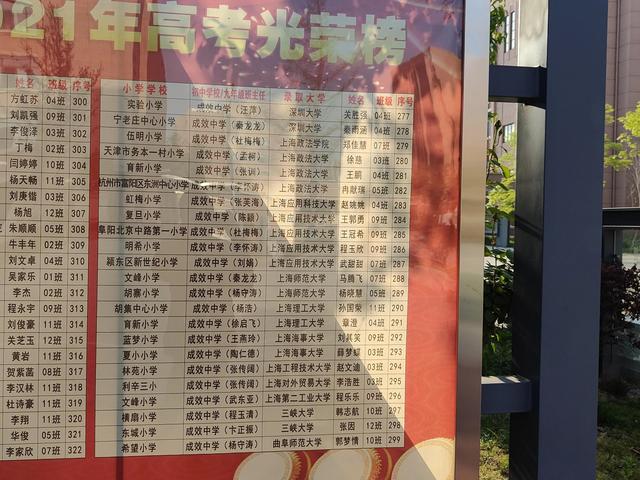 021年高考光荣榜
姓名 班级 序号 小学学校 初中学校/九年级班主任 录取大学 姓名 班级 序号
方虹苏 04班 300 实验小学 成效中学（汪萍） 深圳大学 关胜强 04班 277
刘凯强 09班 301 宁老庄中心小学 成效中学（秦龙龙） 深圳大学 秦雨涵 04班 278
李俊泽 03班 302 伍明小学 成效中学（杜梅梅） 上海政法学院 郑佳慧 07班 279
丁梅 02班 303 天津市务本一村小学 成效中学（孟柯） 上海政法大学 徐慈 03班 280
闫婷婷 10班 304 育新小学 成效中学（张训） 上海政法大学 王鹏 04班 281
杨天畅 11班 305 杭州市富阳区东洲中心小学 成效中学（李怀涛） 上海政法大学 冉献瑞 05班 282
刘庚锴 03班 306 虹梅小学 成效中学（张芙海） 上海应用科技大学 赵姚姚 04班 283
杨旭 12班 307 复旦小学 成效中学（陈颖） 上海应用技术大学 王郭勇 09班 284
朱顺顺 05班 308 阜阳北京中路第一小学 成效中学（杜梅梅） 上海应用技术大学 王冠希 09班 285
牛丰年 02班 309 明希小学 成效中学（李怀涛） 上海应用技术大学 程玉欣 09班 286
刘文卓 04班 310 颍东区新世纪小学 成效中学（刘娟） 上海应用技术大学 武甜甜 07班 287
吴家乐 01班 311 文峰小学 成效中学（秦龙龙） 上海师范大学 马腾飞 12班 288
李杰 02班 312 胡寨小学 成效中学（杨守涛） 上海师范大学 杨晓慧 05班 289
程永宇 09班 313 胡集中心小学 成效中学（杨浩） 上海理工大学 孙国荣 11班 290
刘俊豪 11班 314 育新小学 成效中学（徐启飞） 上海理工大学 章澄 04班 291
关芝玉 12班 315 蓝梦小学 成效中学（王燕玲） 上海海事大学 刘其笑 09班 292
黄岩 11班 316 夏小小学 成效中学（陶仁德） 上海海事大学 薛梦蝶 03班 293
贺紫菡 08班 317 林苑小学 成效中学（张传阔） 上海工程技术大学 赵文迪 03班 294
李汉林 11班 318 利辛三小 成效中学（张传阔） 上海对外贸易大学 李浩胜 03班 295
杜诗豪 11班 319 文峰小学 成效中学（武东亚） 上海第二工业大学 程乐乐 09班 296
李翔 11班 320 横扇小学 成效中学（程玉清） 三峡大学 韩志航 10班 297
华俊 05班 321 东城小学 成效中学（卞正振） 三峡大学 张因 12班 298
李家欣 07班 322 希望小学 成效中学（杨守涛） 曲阜师范大学 郭梦情 10班 299